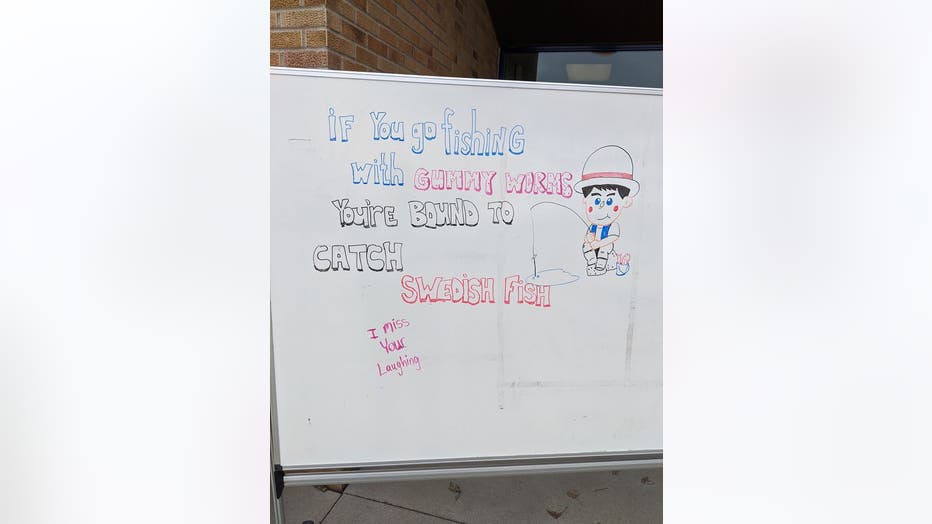 iF You go fishinG
with GUMMY WORMS
You're BOUND TO
CATCH
SWEDISH FisH
I miss
Your
Laughing